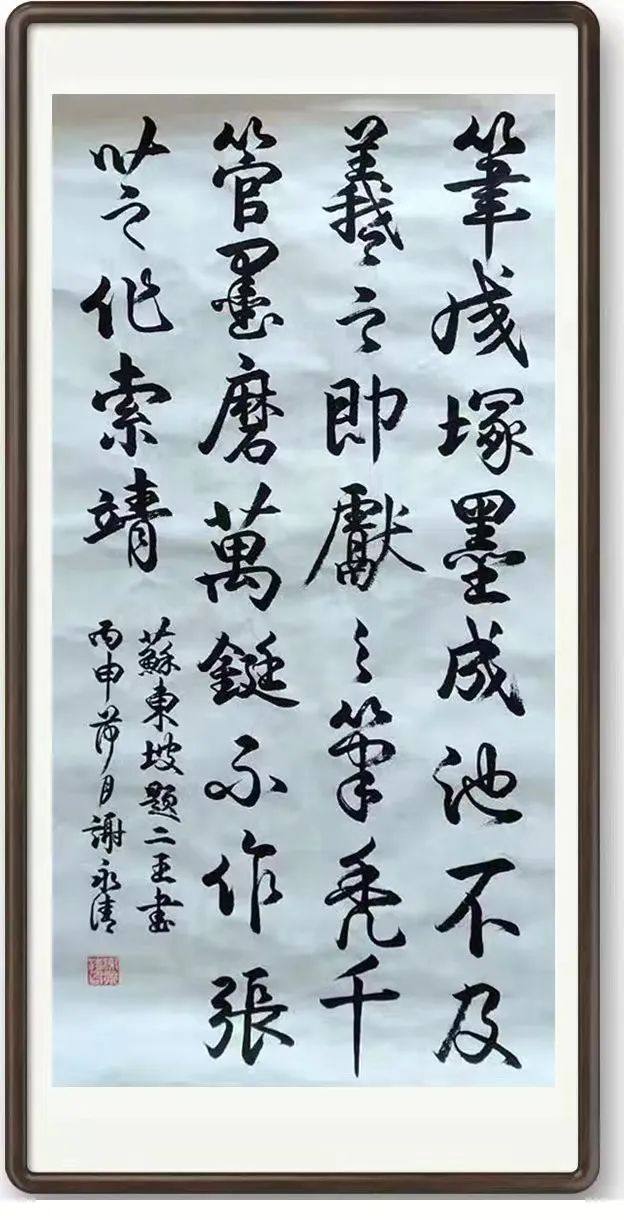 筆成塚墨成池不及
羲之即獻之筆禿千
管墨磨萬鋌不作張
芝作索靖
蘇東坡題二王書
丙申荷月謝永清